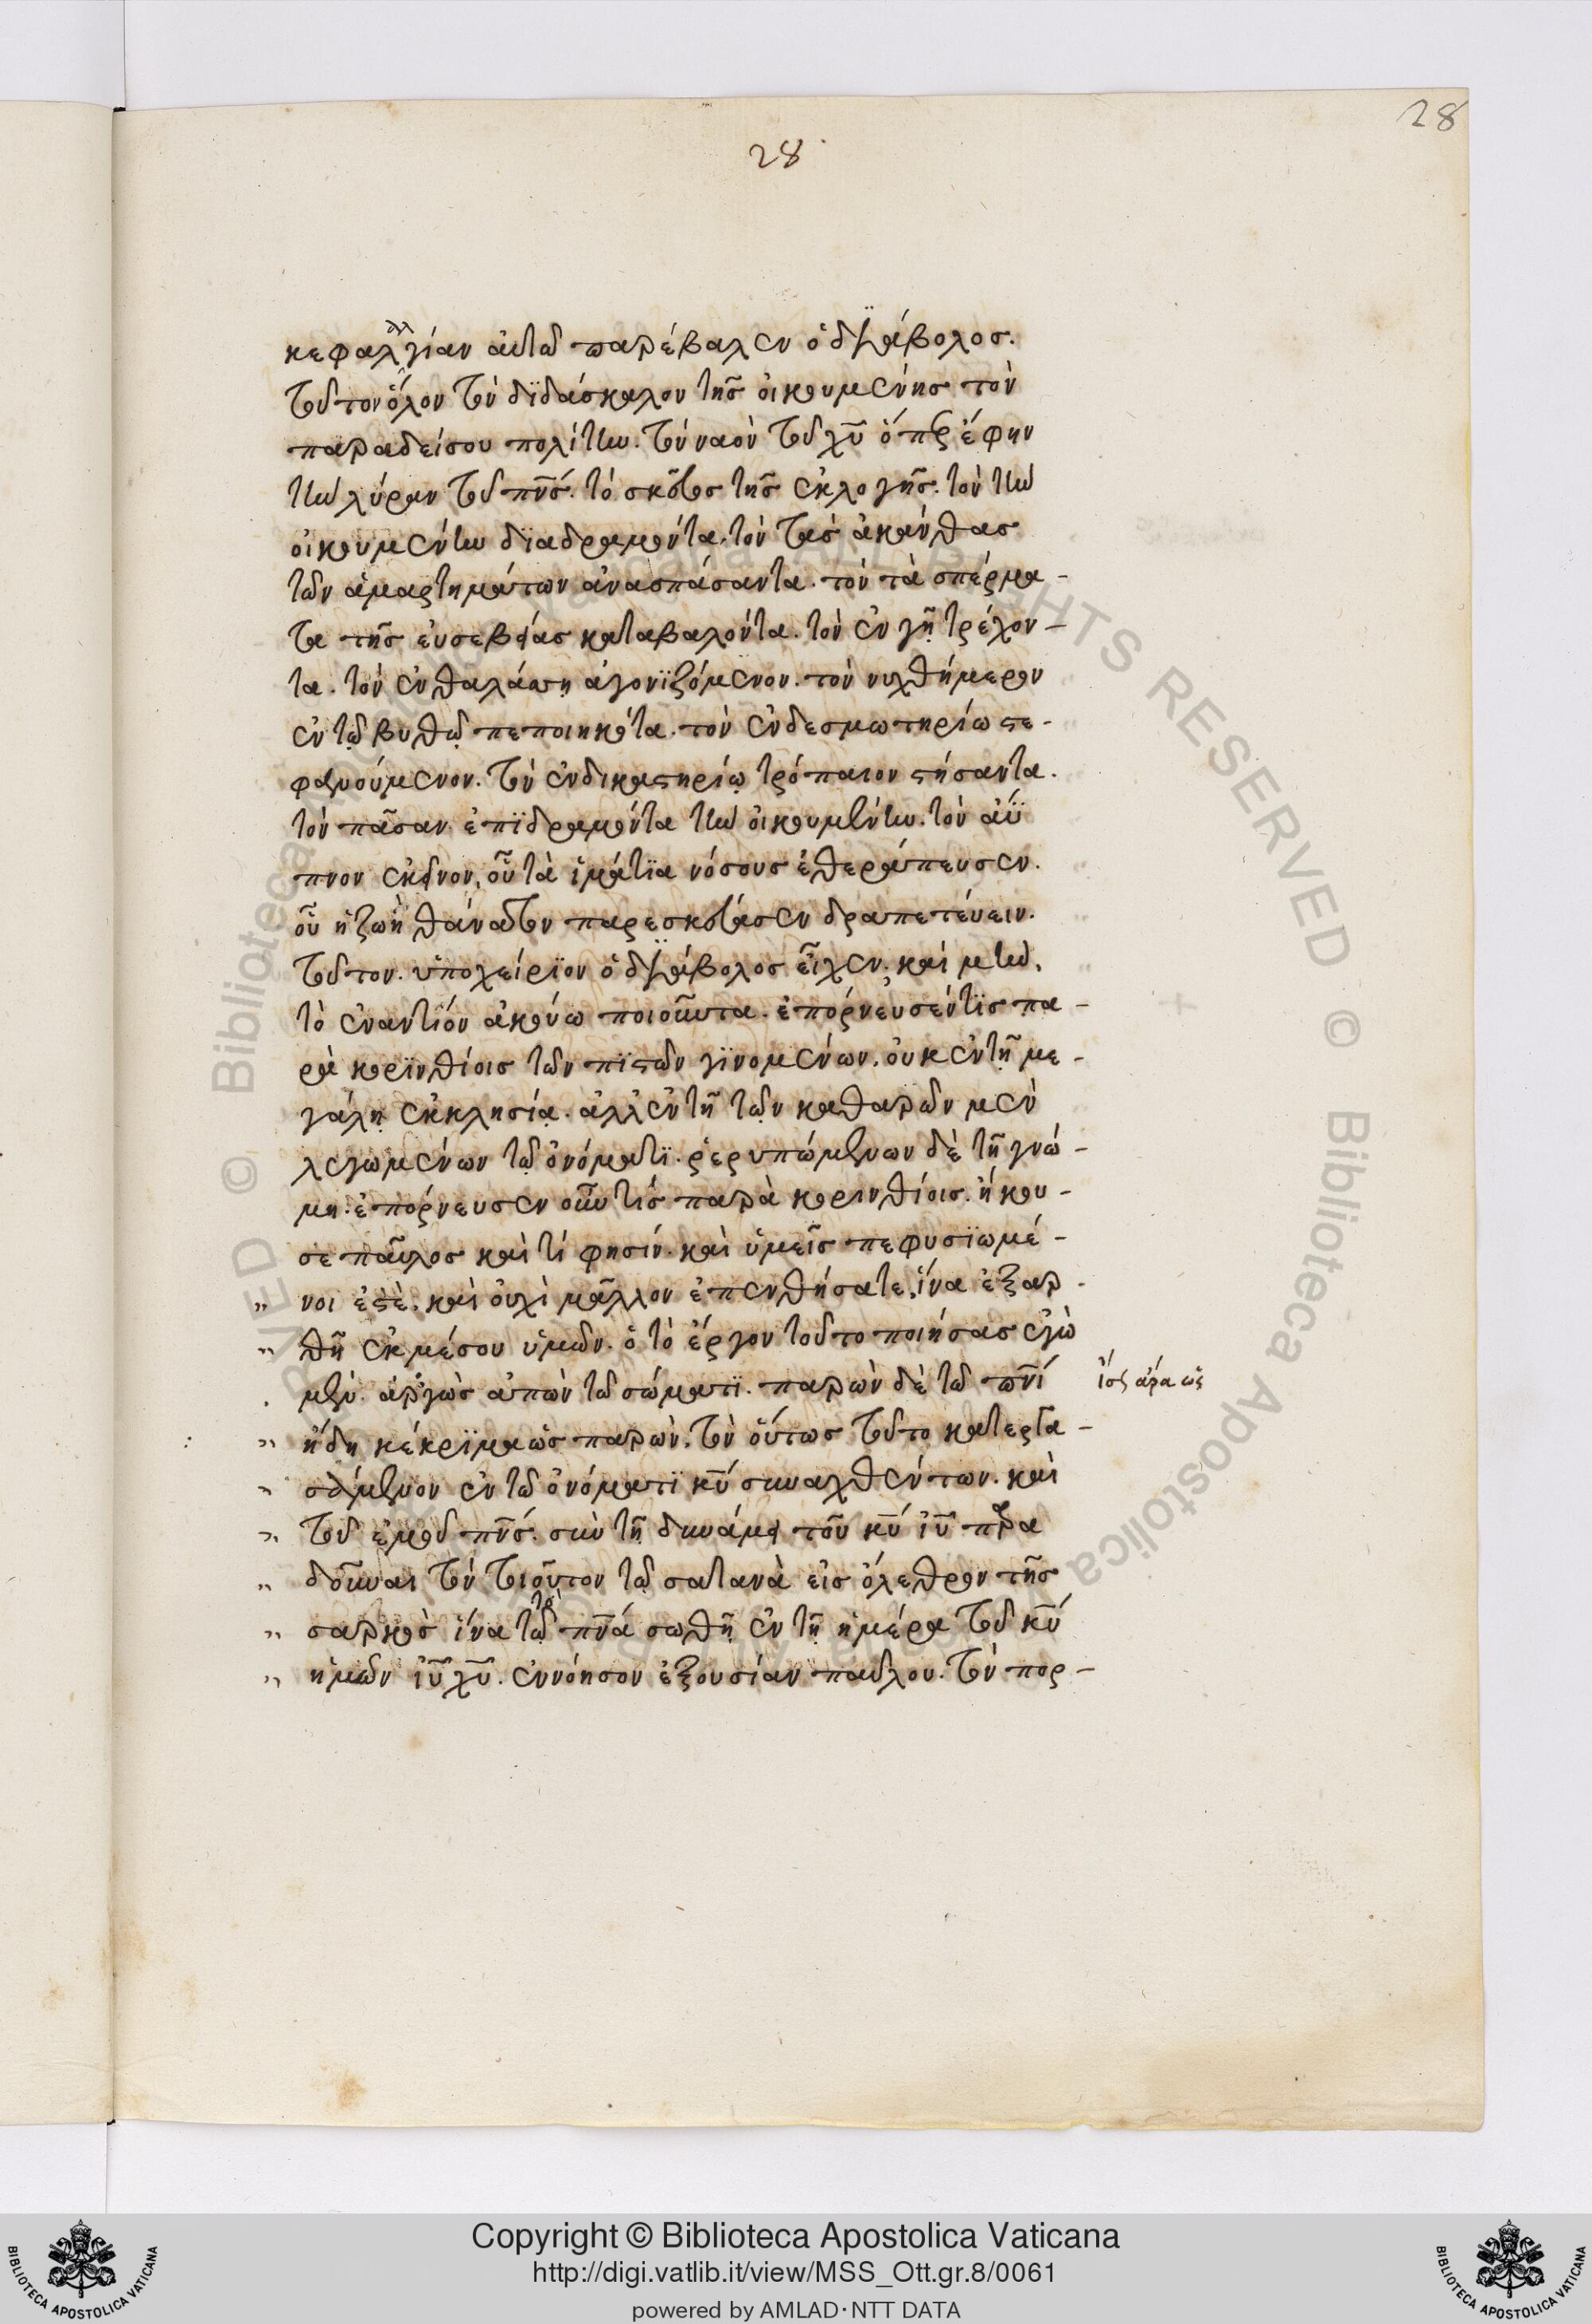 28
28
κεφαλγίαν αὐτῶ παρέβαλεν ὁ διάβολος.
τοῦτον ὅλον τὸν διδάσκαλον τῆς οἰκουμένης τὸν
παραδείσου πολίτην. τὸν ναὸν τοῦ χῦ ὅπερ ἔφην
τὴν λύραν τοῦ πνς. τὸ σκεῦος τῆς ἐκλογῆς. τὸν τὴν
οἰκουμένην διαδραμόντα. τὸν τὰς ἀκάνθας
τῶν ἁμαρτημάτων ἀνασπάσαντα. τὸν τὰ σπέρμα-
τα τῆς εὐσεβείας καταβαλόντα. τὸν ἐν γῇ τρέχον-
τα. τὸν ἐν θαλάσσῃ ἀγονϊζόμενον. τὸν νυχθήμερον
ἐν τῷ βυθῷ πεποιηκότα. τὸν ἐν δεσμωτηρίω στε-
φανούμενον. τὸν ἐν δικαστηρίῳ τρόπαιον στήσαντα.
τὸν πᾶσαν ἐπϊδραμόντα τὴν οἰκουμένην. τὸν ἄϋ
πνον ἐκεῖνον, οὗ τὰ ἱμάτϊα νόσους ἐθεράπευσεν.
οὗ ἡ ζωὴ θάνατον παρεσκεύασεν δραπετέυειν.
τοῦτον. ὑποχείρϊον ὁ διάβολος εἶχεν. καί μὴν.
τὸ ἐναντίον ἀκούω ποιοῦντα. ἐπόρνευσέν τις πα-
ρὰ κορϊνθίοις τῶν πϊστῶν γϊνομένων. οὐκ ἐν τῇ με-
γάλῃ ἐκκλησίᾳ. ἀλλ ἐν τῇ τῶν καθαρῶν μὲν
λεγωμένων τῷ ὀνόματϊ. ῥερυπώμένων δὲ τῇ γνώ-
μη. ἐπόρνευσεν οὖν τίς παρὰ κορινθίοις. ἤκου-
σε παῦλος καὶ τί φησίν. καὶ ὑμεῖς πεφυσϊωμέ-
" νοι ἐστὲ. καὶ οὐχὶ μᾶλλον ἐπενθήσατε. ἵνα ἐξαρ-
" θῇ ἐκ μέσου ὑμῶν. ὁ τὸ ἔργον τοῦτο ποιήσας ἐγὼ
. μὲν. ἀπὼν τῶ σώματϊ. παρὼν δὲ τῶ πνί ἴσς ἄρα ὡς
" ἤδη κέκρϊμαι ὡς παρὼν. τὸν ὅυτως τοῦτο κατεργα-
" σάμενον ἐν τῶ ὀνόματϊ κυ συναχθέντων. καὶ
" τοῦ ἐμοῦ πνς. σὺν τῇ δυνάμει τοῦ κυ ἰυ παρα
" δοῦναι τὸν τοιοῦτον τῷ σατανὰ εἰς ὄλεθρον τῆς
" σαρκὸς ἵνα τὸ πνα σωθῇ ἐν τῇ ἡμέρα τοῦ κυ
" ἡμῶν ἰυ χυ. ἐννόησον ἐξουσίαν παύλου. τὸν πορ-
Copyright © Biblioteca Apostolica Vaticana
http://digi.vatlib.it/view/MSS_Ott.gr.8/0061
powered by AMLAD·NTT DATA